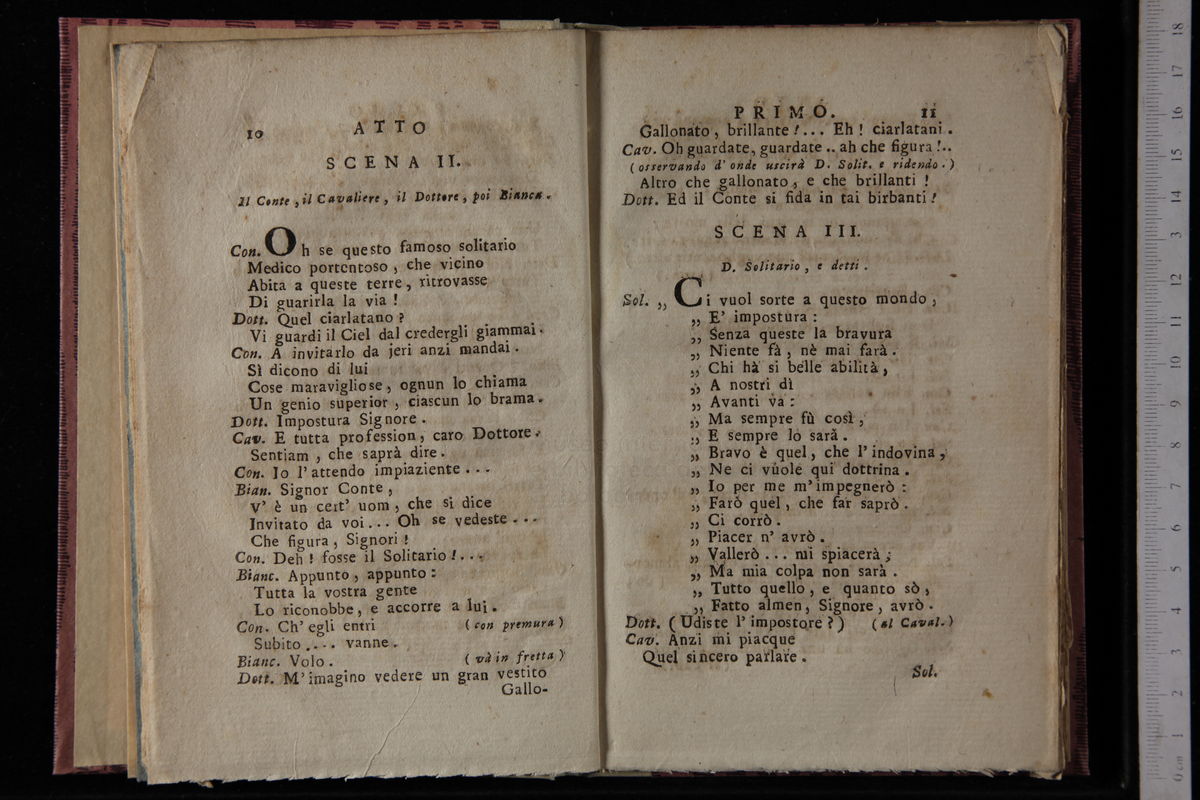 10 ATTO
SCENA II.
Il Conte, il Cavaliere, il Dottore, poi Bianca.
Con. Oh se questo famoso solitario
Medico portentoso, che vicino
Abita a queste terre, ritrovasse
Di guarirla la via!
Dott. Quel ciarlatano?
Vi guardi il Ciel dal credergli giammai.
Con. A invitarlo da jeri anzi mandai.
Sì dicono di lui
Cose maravigliose, ognun lo chiama
Un genio superior, ciascun lo brama.
Dott. Impostura Signore.
Cav. E tutta profession, caro Dottore.
Sentiam, che saprà dire.
Con. Io l'attendo impiaziente...
Bian. Signor Conte,
V'è un cert' uom, che si dice
Invitato da voi... Oh se vedeste...
Che figura, Signori!
Con. Deh! fosse il Solitario!...
Bianc. Appunto, appunto:
Tutta la vostra gente
Lo riconobbe, e accorre a lui.
Con. Ch' egli entri (con premura)
Subito.... vanne.
Bianc. Volo. (và in fretta)
Dott. M'imagino vedere un gran vestito
Gallo-
PRIMO. 11
Gallonato, brillante!... Eh! ciarlatani.
Cav. Oh guardate, guardate.. ah che figura!..
(osservando d'onde uscirà D. Solit. e ridendo.)
Altro che gallonato, e che brillanti!
Dott. Ed il Conte si fida in tai birbanti!
SCENA III.
D. Solitario, e detti.
Sol. ,, Ci vuol sorte a questo mondo,
,, E' impostura:
,, Senza queste la bravura
,, Niente fà, nè mai farà.
,, Chi hà si belle abilità,
,, A nostri dì
,, Avanti va:
,, Ma sempre fù così,
,, E sempre lo sarà.
,, Bravo è quel, che l'indovina,
,, Ne ci vuole qui dottrina.
,, Io per me m'impegnerò:
,, Farò quel, che far saprò.
,, Ci corrò.
,, Piacer n' avrò.
,, Vallerò... mi spiacerà;
,, Ma mia colpa non sarà.
,, Tutto quello, e quanto sò,
,, Fatto almen, Signore, avrò.
Dott. (Udiste l'impostore?) (al Caval.)
Cav. Anzi mi piacque
Quel sincero parlare.
Sol.